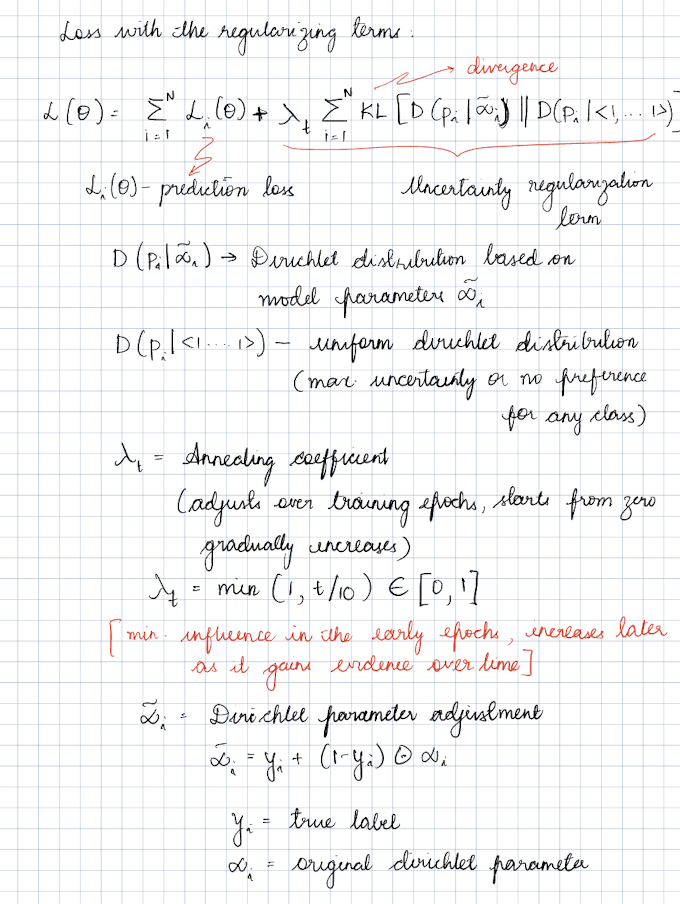 Loss with the regularizing terms:
divergence
L(θ) = Σ_{i=1}^{N} L_i(θ) + λ_t Σ_{i=1}^{N} KL [D(p_i|α̃_i) || D(p_i|<1,...1>)]
L_i(θ) - prediction loss
Uncertainty regularization
term
D(p_i|α̃_i) → Dirichlet distribution based on
model parameters α̃_i
D(p_i|<1....1>) - uniform dirichlet distribution
(max. uncertainty or no preference
for any class)
λ_t = Annealing coefficient
(adjusts over training epochs, starts from zero
gradually increases)
λ_t = min (1, t/10) ∈ [0, 1]
[min. influence in the early epochs, increases later
as it gains evidence over time]
α̃_i = Dirichlet parameter adjustment
α̃_i = y_i + (1-y_i) ⊙ α_i
y_i = true label
α_i = original dirichlet parameter